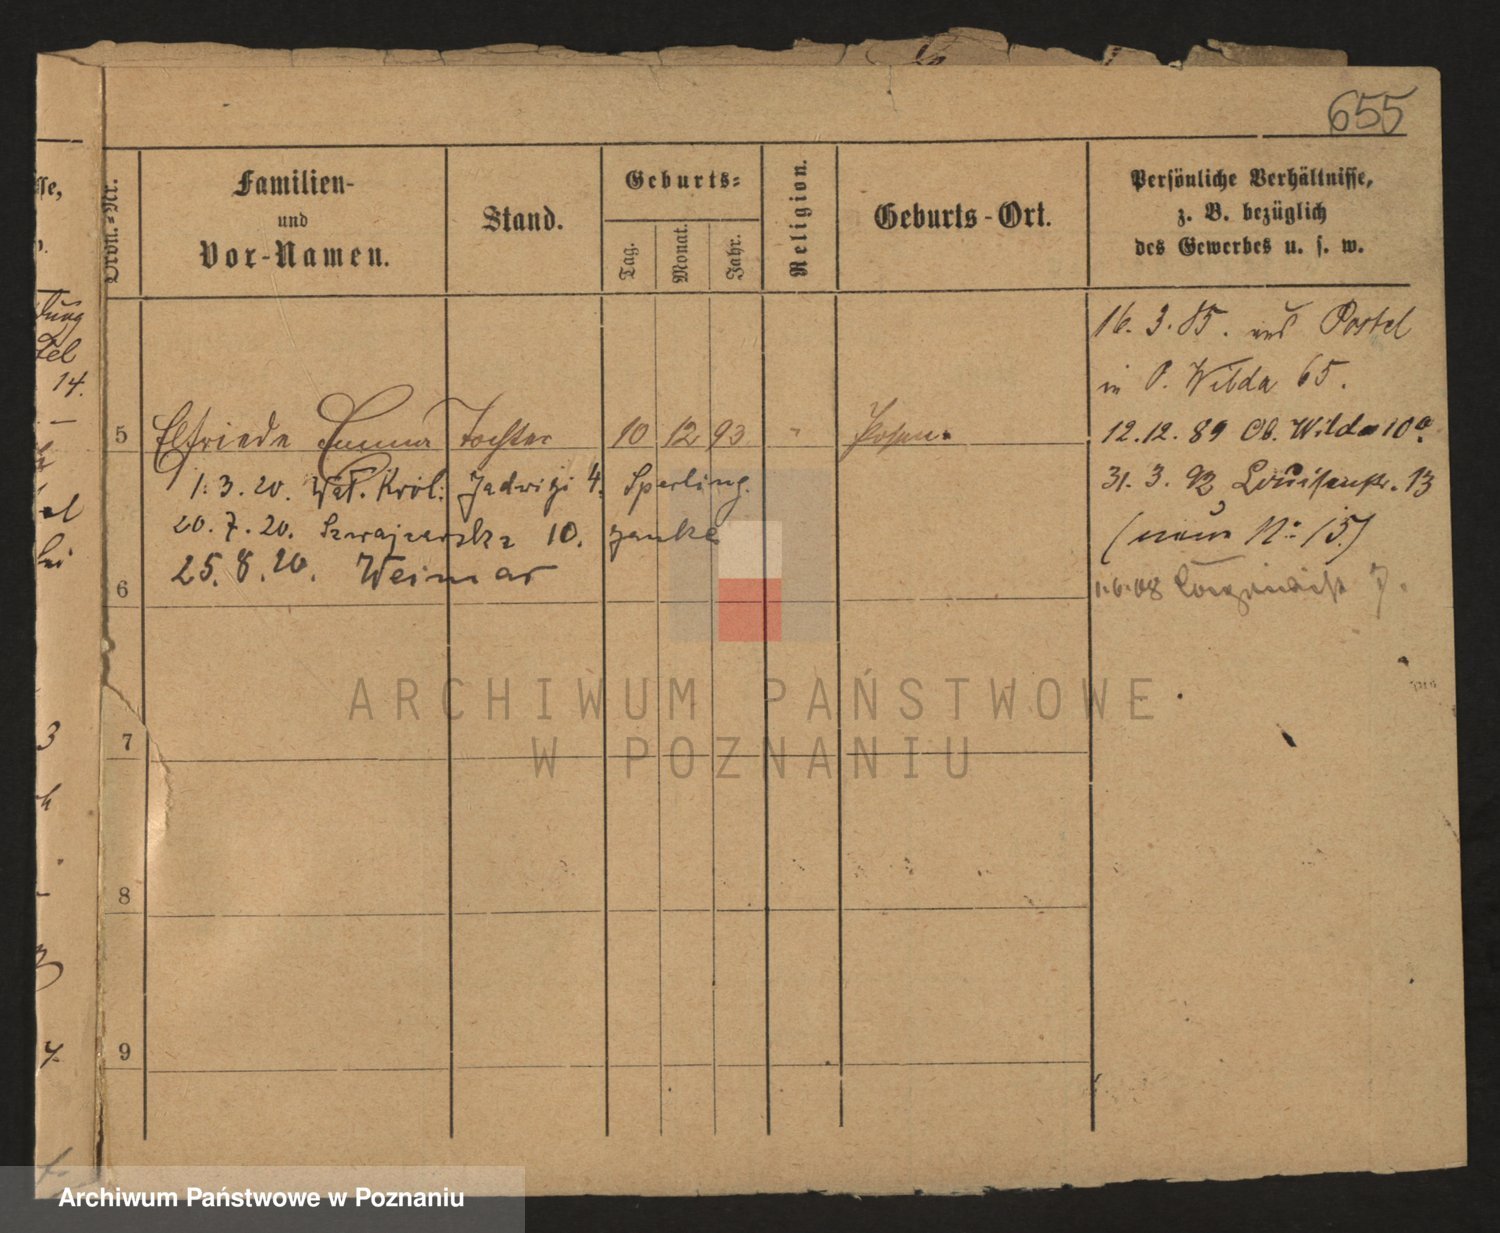 655
Ordn.-Nr.
Familien-
und
Vor-Namen.
Stand.
Geburts-
Tag.
Monat.
Jahr.
Religion.
Geburts-Ort.
Persönliche Verhältnisse,
z. B. bezüglich
des Gewerbes u. s. w.
16. 3. 85. aus Postel
in P. Wilda 65.
5 Elfriede Emma Tochter 10 12 93 " Posen
12. 12. 89 Ob. Wilda 10a
1. 3. 20. Wał. Król. Jadwigi 4. Sperling.
31. 3. 92 Louisenstr. 13
20. 7. 20. Szwajcarska 10. Janke
(neue No 15.)
25. 8. 20. Weimar
6
1. 6. 08
7
8
9
14.
3
ARCHIWUM PAŃSTWOWE
W POZNANIU
Archiwum Państwowe w Poznaniu